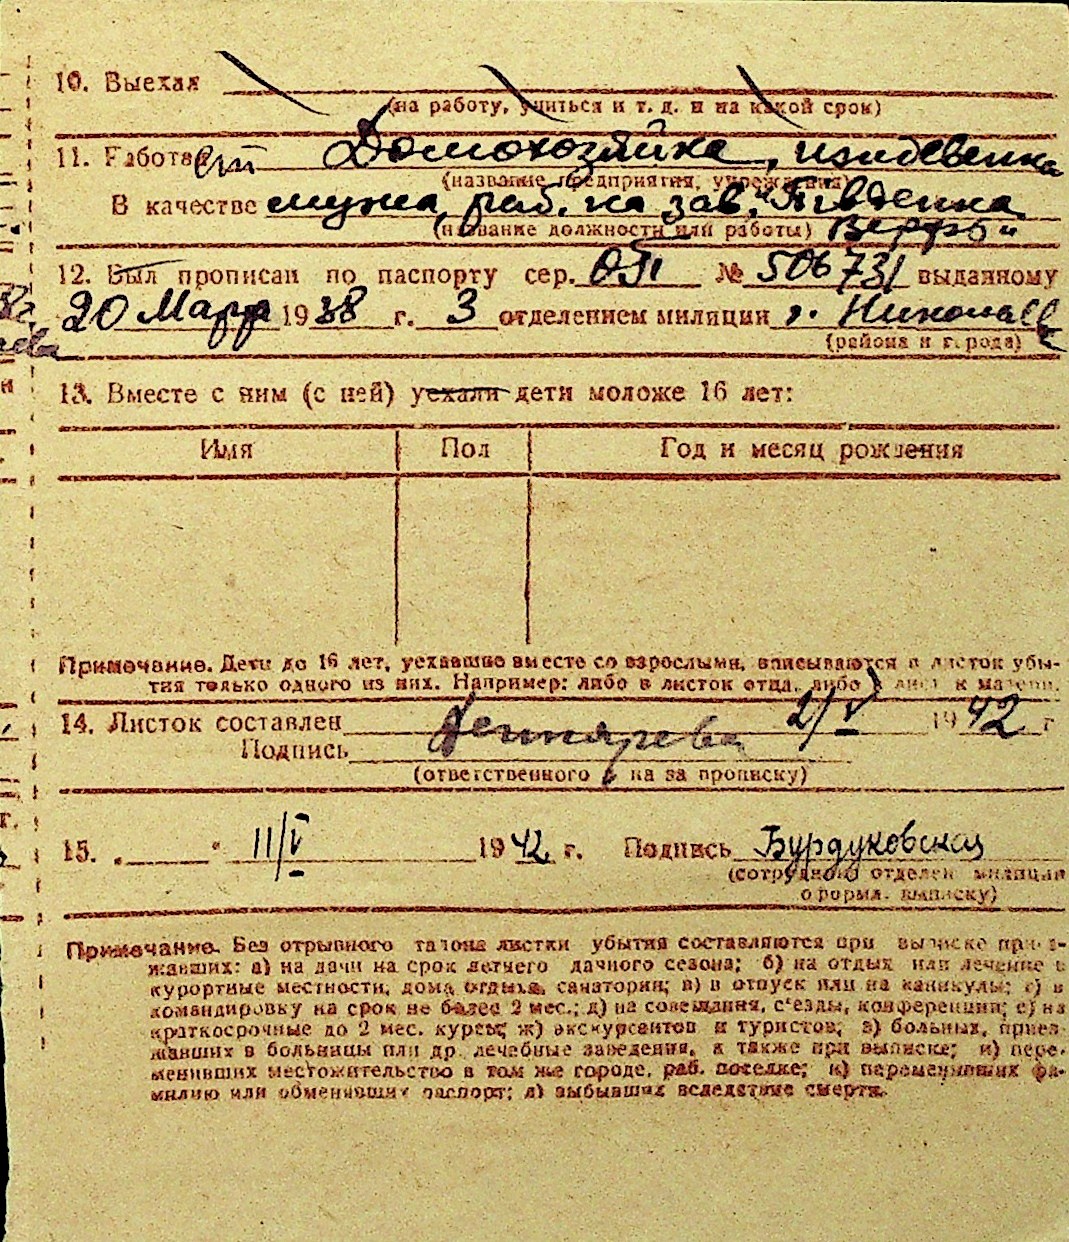 10. Выехал
(на работу, учиться и т. д. и на какой срок)
11. Работает Домохозяйка, иждевенка
(название предприятия, учреждения)
В качестве мужа, раб. на зав. "Південна
(название должности или работы) Верфь"
12. Был прописан по паспорту сер. № 506731 выданному
20 Марта 1938 г. 3 отделением милиции г. Николаев
(района и города)
13. Вместе с ним (с ней) уехали дети моложе 16 лет:
Имя Пол Год и месяц рождения
Примечание. Дети до 16 лет, уехавшие вместе со взрослыми, вписываются в листок убы-
тия только одного из них. Например: либо в листок отца, либо в лист к матери.
14. Листок составлен 2/V 1942 г
Подпись
(ответственного за прописку)
15. „ " 11/V 1942 г. Подпись Бурдуковская
(сотрудника отделен милиции
оформл. выписку)
Примечание. Без отрывного талона листки убытия составляются при выписке приез-
жавших: а) на дачи на срок летнего дачного сезона; б) на отдых или лечение в
курортные местности, дома отдыха, санатории; в) в отпуск или на каникулы; г) в
командировку на срок не более 2 мес.; д) на совещания, с'езды, конференции; е) на
краткосрочные до 2 мес. курсы; ж) экскурсантов и туристов; з) больных, приез-
жавших в больницы или др. лечебные заведения, а также при выписке; и) пере-
менивших местожительство в том же городе, раб. поселке; к) переменивших фа-
милию или обменявших паспорт; л) выбывших вследствие смерти.